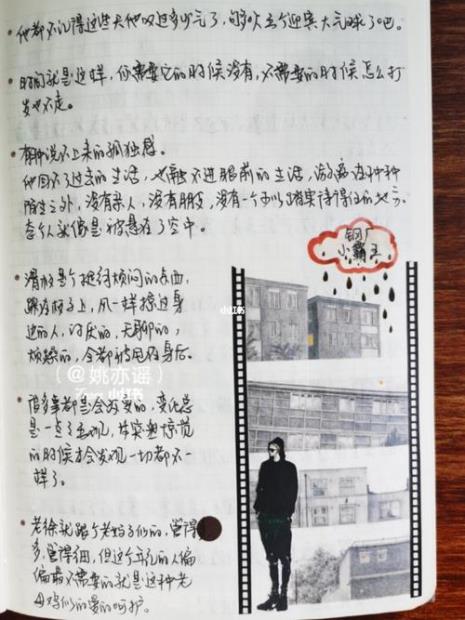 他都不记得这些天他叹过多少气了，够吹五个迎宾大气球了吧。
时间就是这样，你需要它的时候没有，不需要的时候怎么打
发也不走。
有种说不上来的孤独感。
他回不了过去的生活，也融不进眼前的生活，游离在种种
陌生之外，没有亲人，没有朋友，没有一个可以踏实待得住的地方。
整个人就像是被悬在了空中。
钢厂
小霸王
滑板是个挺纾烦闷的东西，
踩在板子上，风一样掠过身
边的人，讨厌的，无聊的，
烦躁的，全都被甩在身后。
小红书
（@姚亦谣）
小红书
很多事都是会改变的，变化总
是一点点出现，在突然惊觉
的时候才会发现一切都不一
样了。
老徐就跟个老妈子似的，管得
多，管得细，但这个年纪的人偏
偏最不需要的就是这种老
母鸡似的呵护。